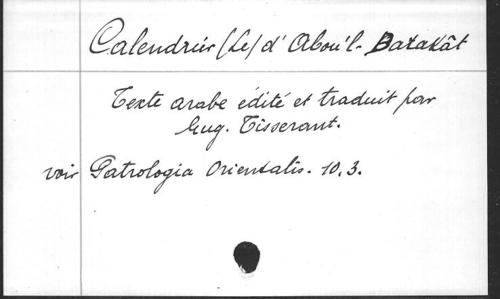 Calendrier (Le) d'Abou'l-Barakât
Texte arabe édité et traduit par
Eug. Tisserant.
voir Patrologia Orientalis. 10,3.